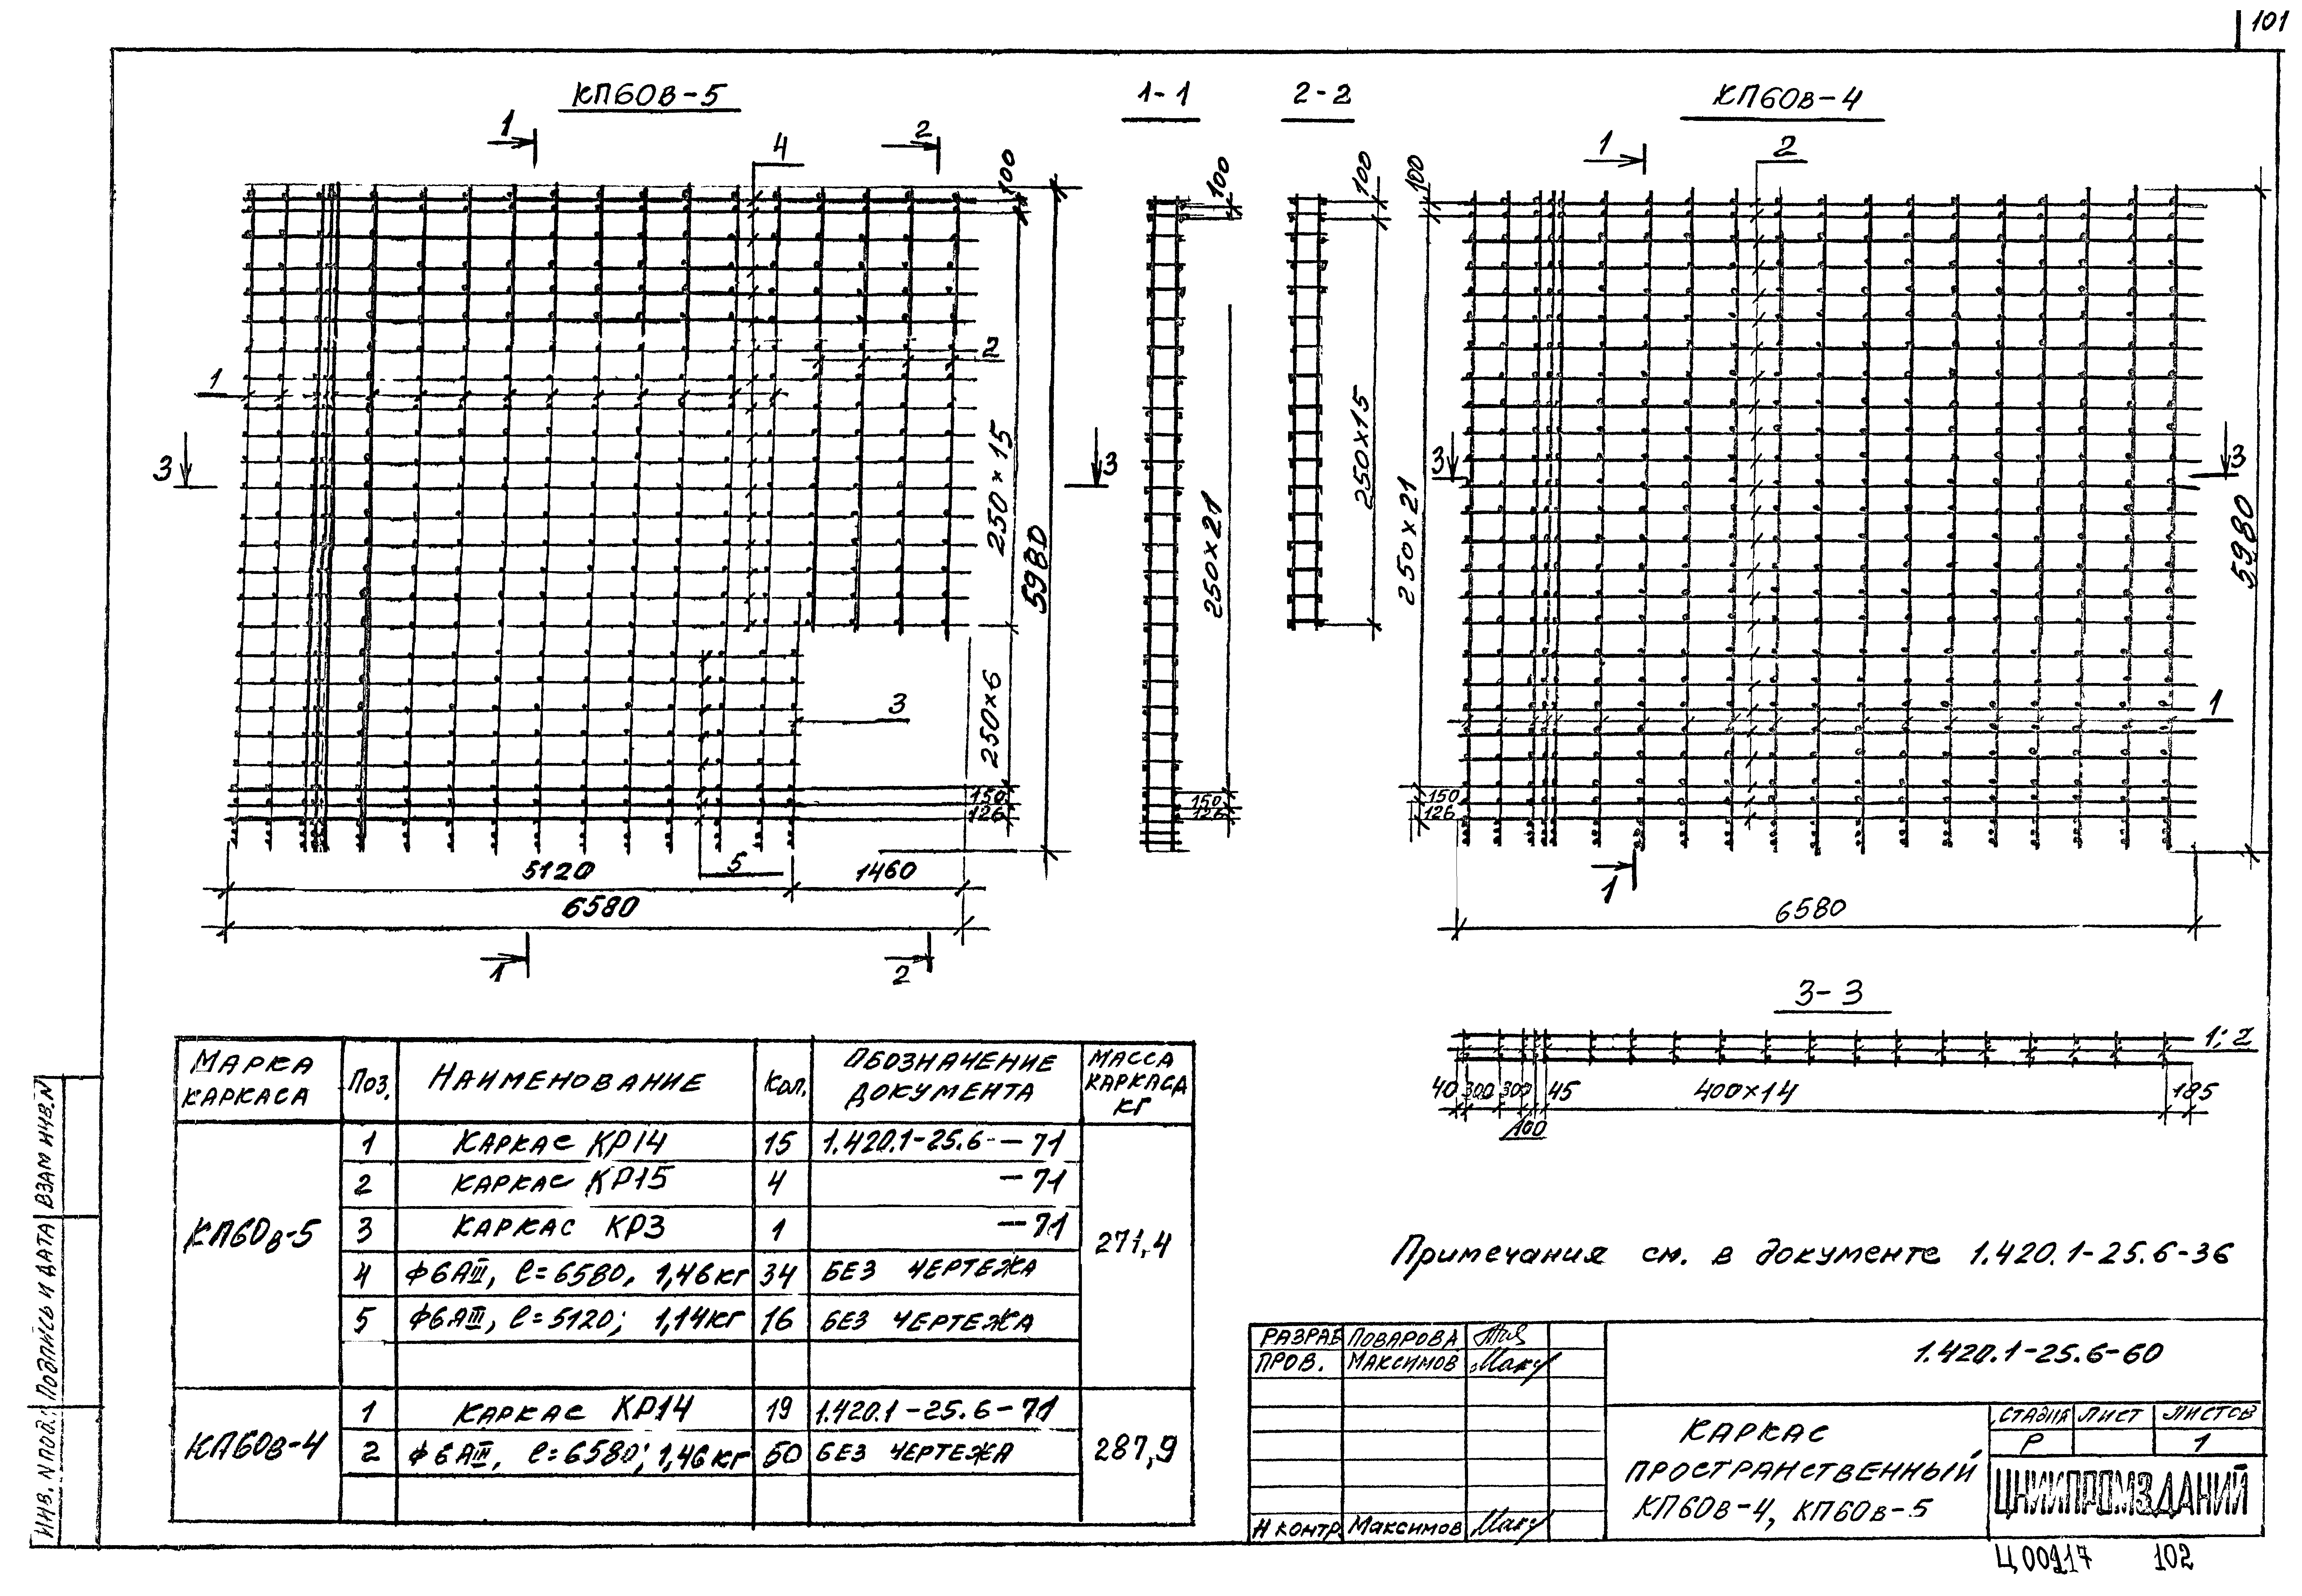 101
КП60в-5
1-1
2-2
КП60в-4
1
2
4
100
100
100
100
1
2
5980
5980
2
1
3
3
3
3
250×15
250×21
250×15
250×21
250×6
3
1
150
126
150
126
150
126
5120
5
1460
6580
6580
1
2
1
3-3
1; 2
40
300
300
100
45
400×14
185
МАРКА КАРКАСА
Поз.
НАИМЕНОВАНИЕ
Кол.
ОБОЗНАЧЕНИЕ ДОКУМЕНТА
МАССА КАРКАСА КГ
КП60в-5
1 КАРКАС КР14 15 1.420.1-25.6-71
2 КАРКАС КР15 4 -71
3 КАРКАС КР3 1 -71
4 ф6АIII, ℓ=6580, 1,46кг 34 БЕЗ ЧЕРТЕЖА
5 ф6АIII, ℓ=5120; 1,14кг 16 БЕЗ ЧЕРТЕЖА
271,4
КП60в-4
1 КАРКАС КР14 19 1.420.1-25.6-71
2 ф6АIII, ℓ=6580; 1,46кг 50 БЕЗ ЧЕРТЕЖА
287,9
Примечания см. в документе 1.420.1-25.6-36
РАЗРАБ ПОВАРОВА
ПРОВ. МАКСИМОВ
Н КОНТР МАКСИМОВ
1.420.1-25.6-60
КАРКАС
ПРОСТРАНСТВЕННЫЙ
КП60в-4, КП60в-5
СТАДИЯ ЛИСТ ЛИСТОВ
Р 1
ЦНИИПРОМЗДАНИЙ
102
ИНВ. N ПОДЛ. ПОДПИСЬ И ДАТА ВЗАМ ИНВ. N